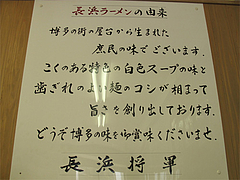 長浜ラーメンの由来
博多の街の屋台から生まれた
庶民の味でございます。
こくのある特色の白色スープの味と
歯ぎれのよい麺のコシが相まって
旨さを創り出しております。
どうぞ博多の味を御賞味くださいませ。
長浜将軍